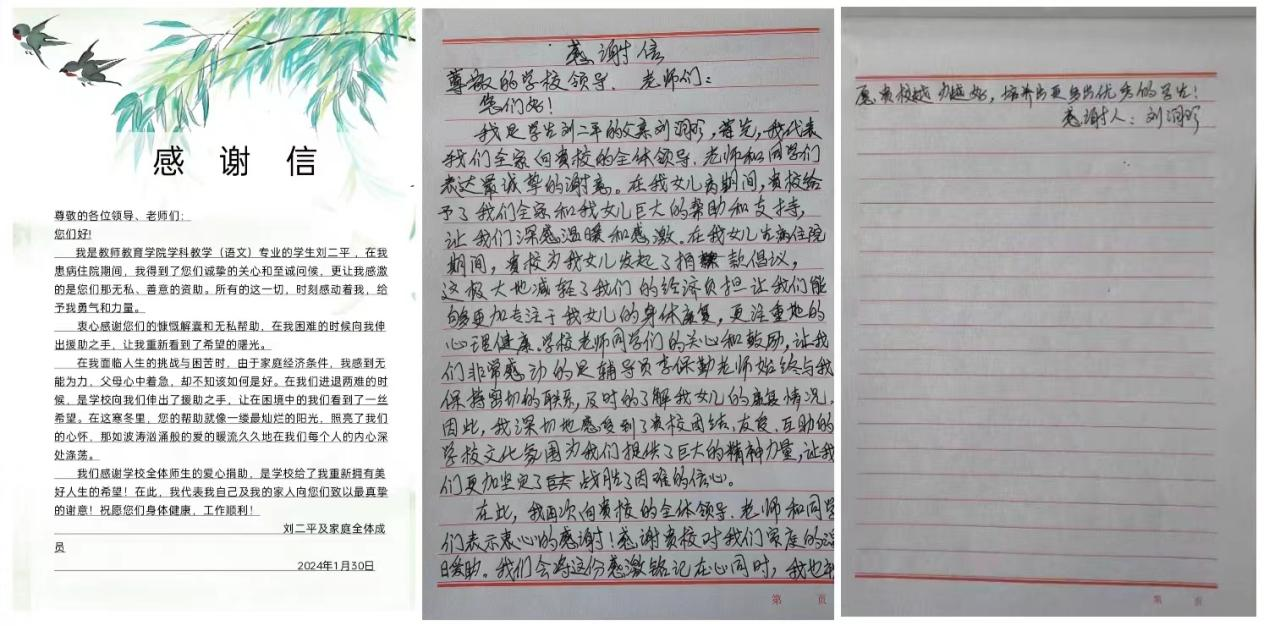 感 谢 信
尊敬的各位领导、老师们:
您们好!
我是教师教育学院学科教学（语文）专业的学生刘二平，在我
患病住院期间，我得到了您们诚挚的关心和至诚问候，更让我感激
的是您们那无私、善意的资助。所有的这一切，时刻感动着我，给
予我勇气和力量。
衷心感谢您们的慷慨解囊和无私帮助，在我困难的时候向我伸
出援助之手，让我重新看到了希望的曙光。
在我面临人生的挑战与困苦时，由于家庭经济条件，我感到无
能为力，父母心中着急，却不知该如何是好。在我们进退两难的时
候，是学校向我们伸出了援助之手，让在困境中的我们看到了一丝
希望。在这寒冬里，您的帮助就像一缕最灿烂的阳光，照亮了我们
的心怀，那如波涛汹涌般的爱的暖流久久地在我们每个人的内心深
处涤荡。
我们感谢学校全体师生的爱心捐助，是学校给了我重新拥有美
好人生的希望！在此，我代表我自己及我的家人向您们致以最真挚
的谢意！祝愿您们身体健康，工作顺利！
刘二平及家庭全体成
员
2024年1月30日
感谢信
尊敬的学校领导、老师们：
您们好！
我是学生刘二平的父亲刘润珍，首先，我代表
我们全家向贵校的全体领导、老师和同学们
表达最诚挚的谢意。在我女儿病期间，贵校给
予了我们全家和我女儿巨大的帮助和支持，
让我们深感温暖和感激。在我女儿生病住院
期间，贵校为我女儿发起了捐款倡议，
这极大地减轻了我们的经济负担让我们能
够更加专注于我女儿的身体康复，更注重她的
心理健康。学校老师同学们的关心和鼓励，让我
们非常感动的是辅导员李保勤老师始终与我
保持密切的联系，及时的了解我女儿的康复情况，
因此，我深切地感受到了贵校团结、友爱、互助的
学校文化氛围为我们提供了巨大的精神力量，让我
们更加坚定了战胜了困难的信心。
在此，我再次向贵校的全体领导、老师和同学
们表示衷心的感谢！感谢贵校对我们家庭的
援助。我们会将这份感激铭记在心同时，我也
第 页
愿贵校越办越好，培养出更多出优秀的学生！
感谢人：刘润珍
第 页